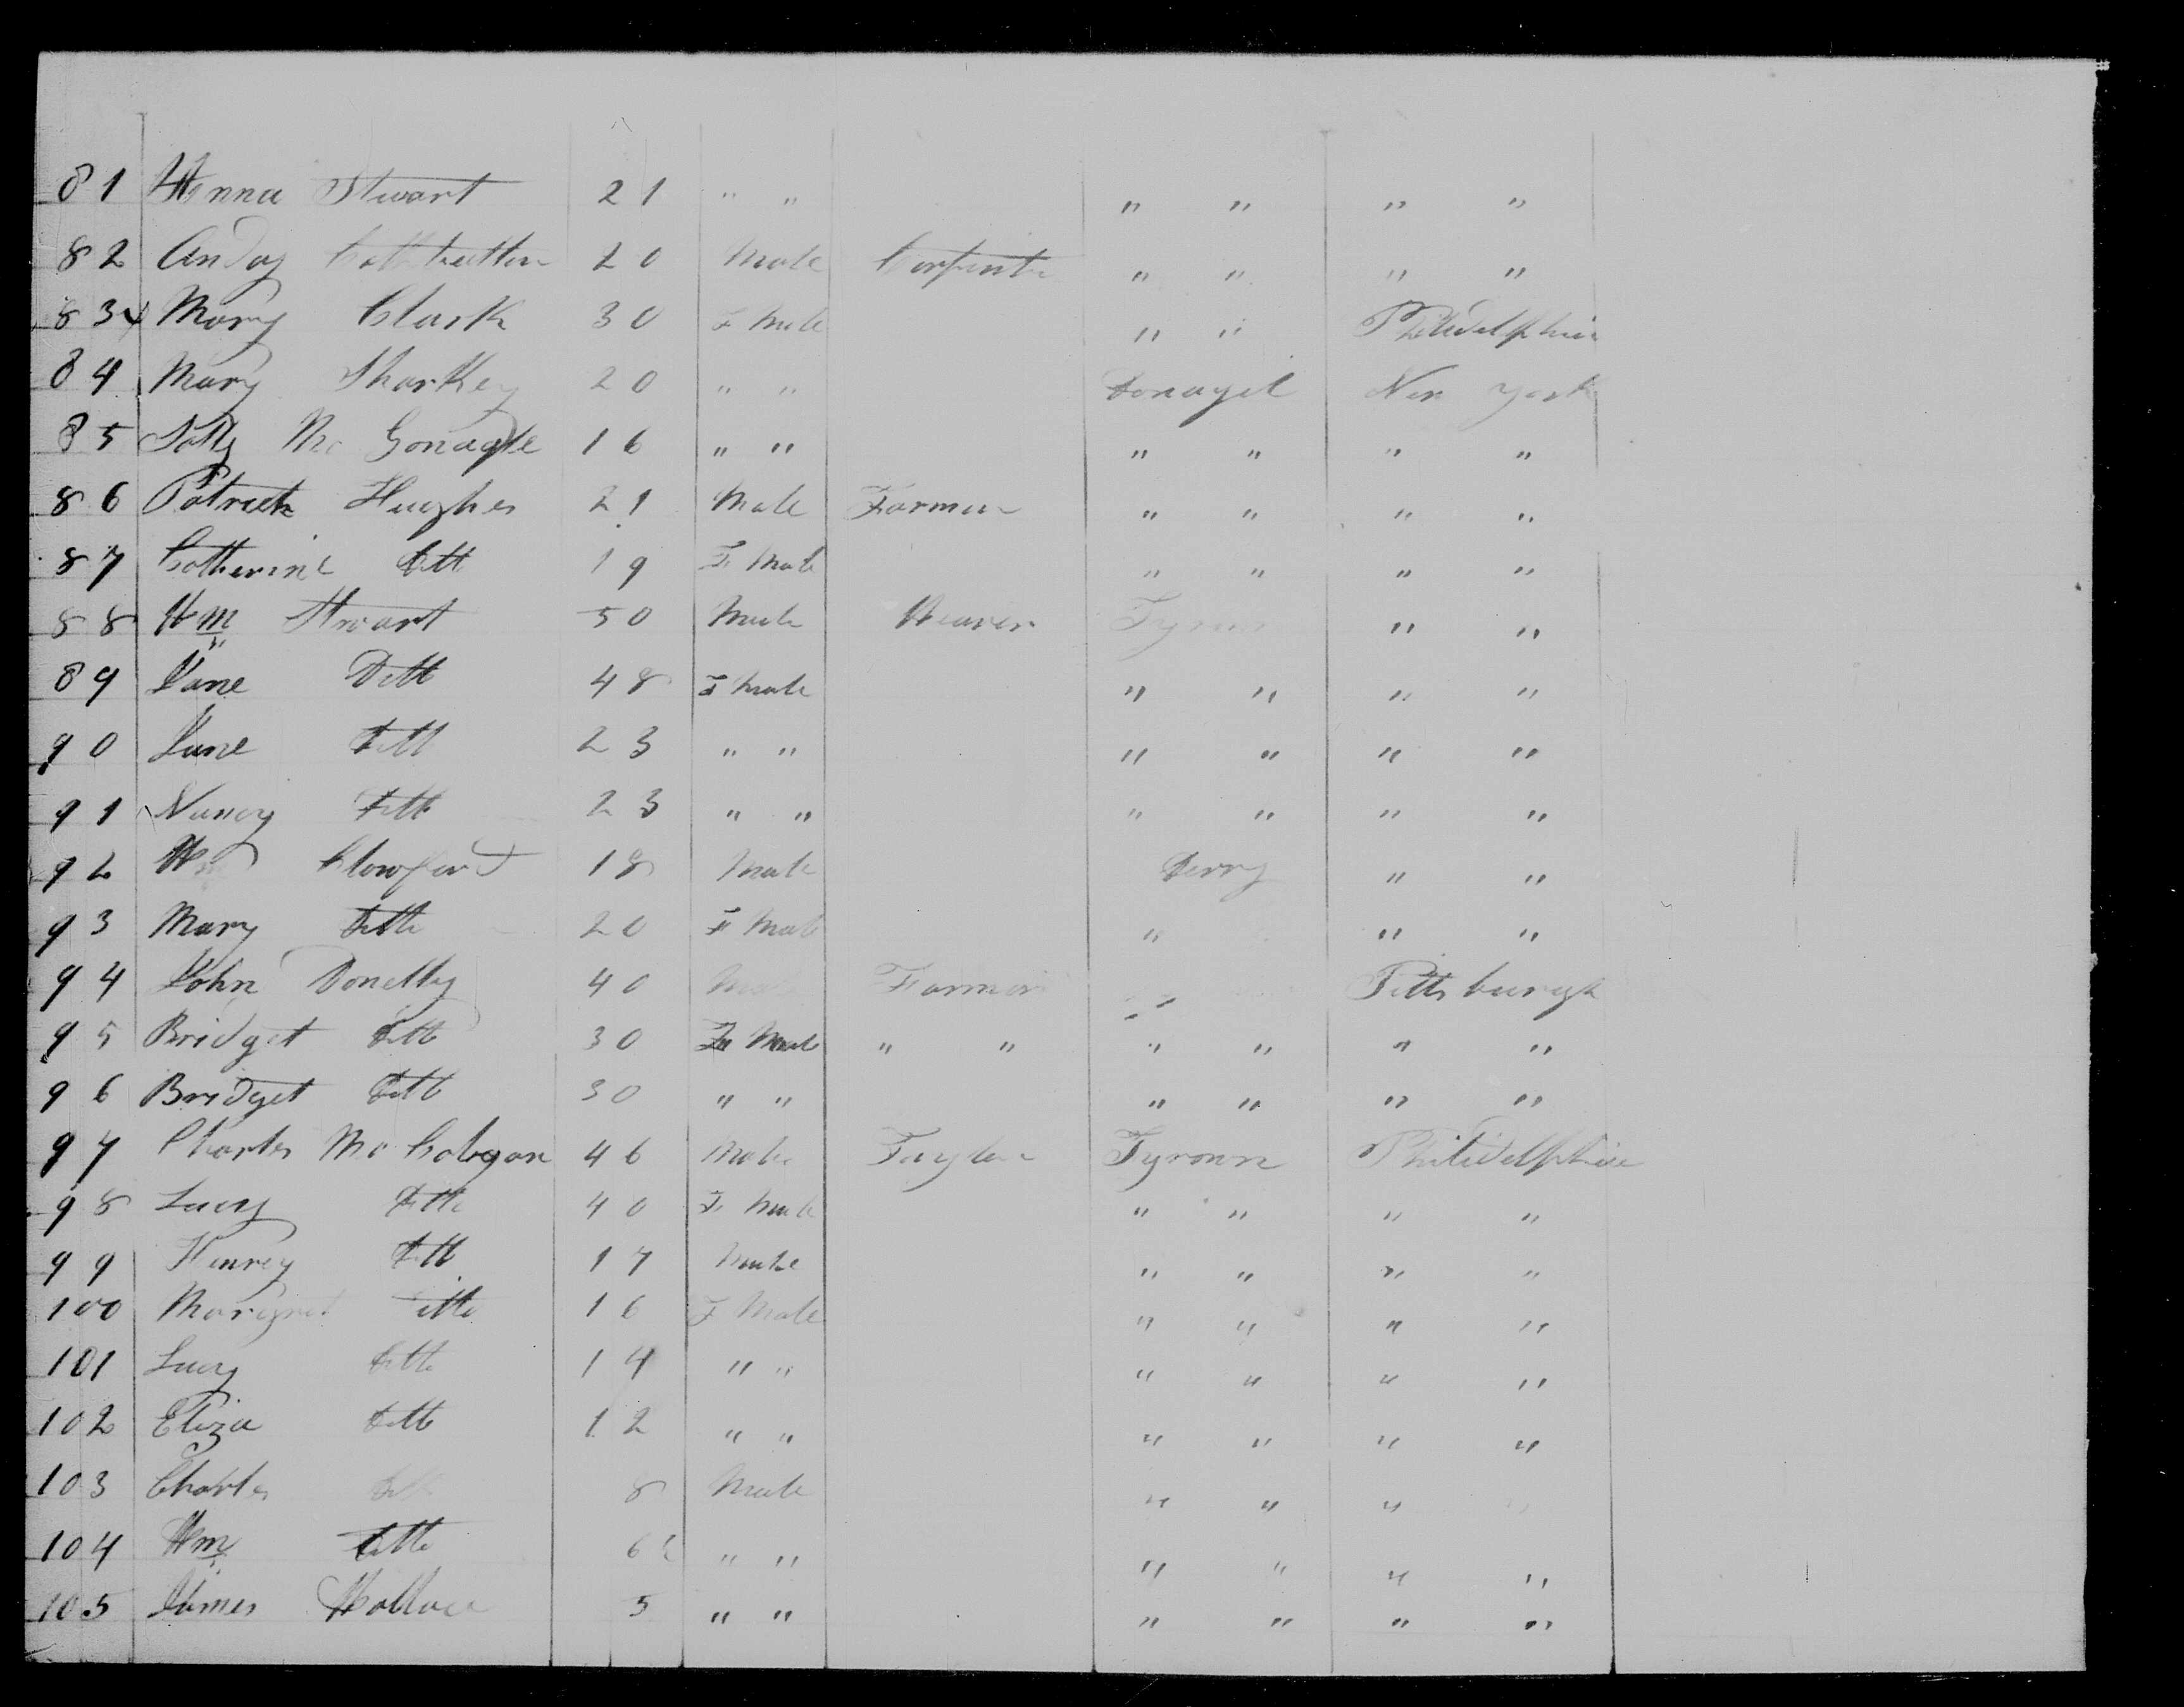 81 Anna Stewart 21 " " " " " "
82 Anday 20 Male Corpente " " " "
83 x Mary Clark 30 F Male " " Philidelphia
84 Mary Sharkey 20 " " Donagel New York
85 Sally Mc Gonagle 16 " " " " " "
86 Patrick Hughes 21 Male Farmer " " " "
87 Catherine Ditt 19 Fe Male " " " "
88 Wm Stewart 50 Male Weaver Tyrone " "
89 Jane Ditt 48 F Male " " " "
90 Jane Ditt 23 " " " " " "
91 Nancy Ditto 23 " " " " " "
92 Wm Clowford 18 Male Derry " "
93 Mary Ditto 20 Fe Male " " "
94 John Donelly 40 Male Farmer " Pittsburgh
95 Bridget Ditto 30 Fe Male " " " " " "
96 Bridget Ditto 30 " " " " " "
97 Charles Mc Colegan 46 Male Taylor Tyronn Philidelphia
98 Lucy Ditto 40 Fe Male " " " "
99 Henrey Ditt 17 Male " " " "
100 Margret Ditto 16 F Male " " " "
101 Lucy Ditto 14 " " " " " "
102 Eliza Ditto 12 " " " " " "
103 Charles Ditt 8 Male " " " "
104 Wm Ditto 6 " " " " " "
105 James Wallace 5 " " " " " "